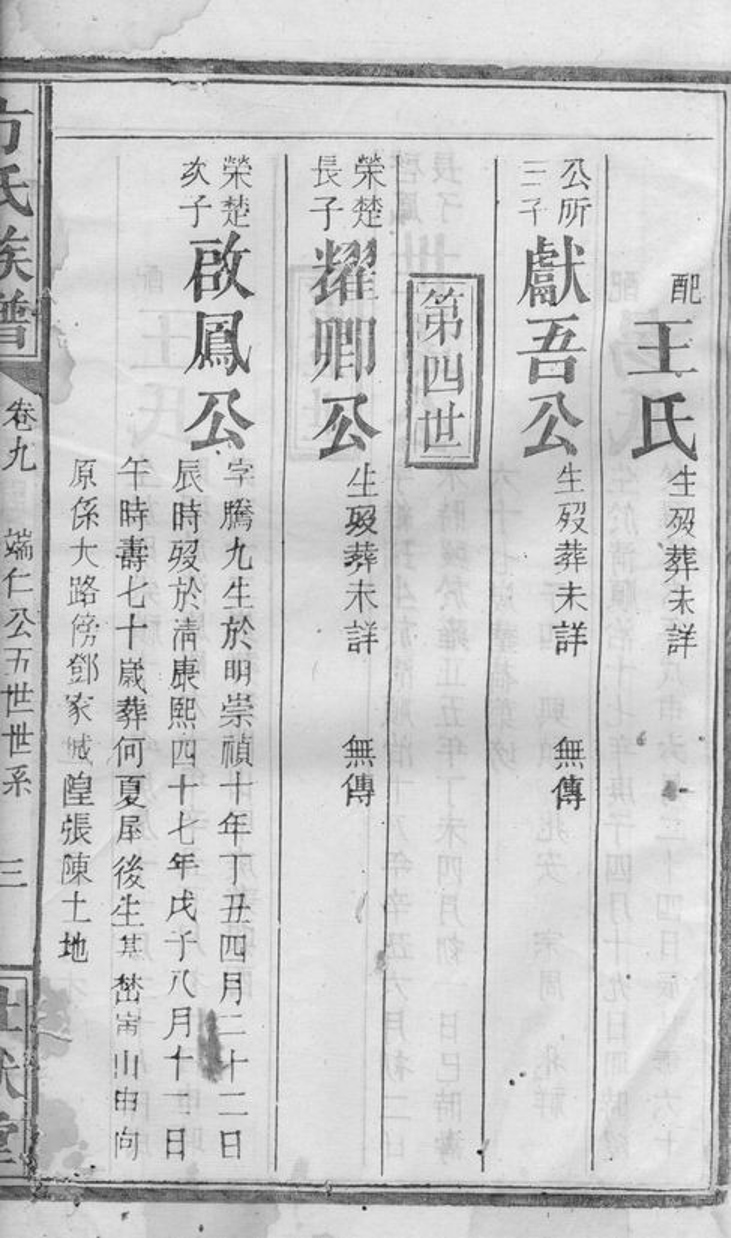 配王氏生殁葬未詳
公所
三子
獻吾公生殁葬未詳 無傳
第四世
榮楚
長子
耀卿公生殁葬未詳 無傳
榮楚
次子
啟鳳公字騰九生於明崇禎十年丁丑四月二十二日
辰時殁於清康熙四十七年戊子八月十一日
午時壽七十歲葬何夏屋後生基塋甯山申向
原係大路傍鄧家城隍張陳土地
方氏族譜
卷九 端仁公五世世系 三